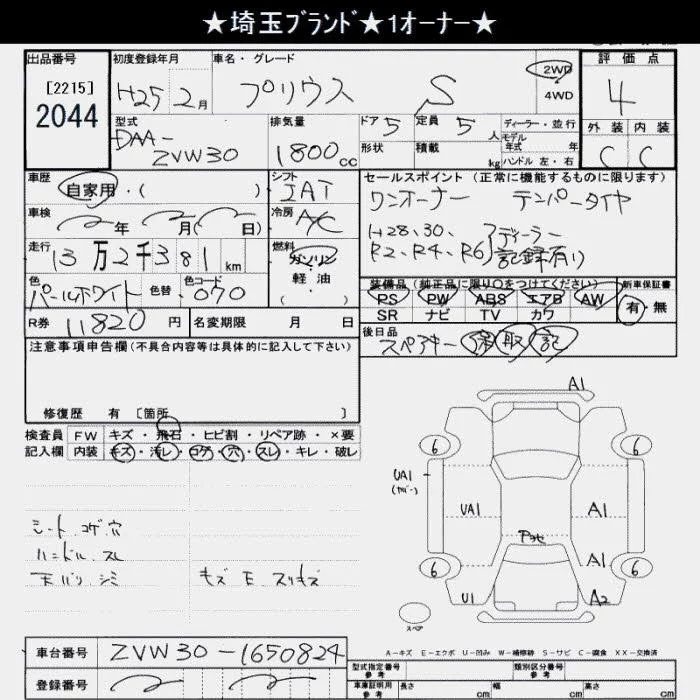 ★埼玉ブランド★1オーナー★
出品番号 初度登録年月 車名・グレード 2WD 評価点
[2215] H25 2月 プリウス S 4WD 4
2044
型式 排気量 ドア 5 定員 5人 ディーラー・並行 外装 内装
DAA- モデル年式 年
ZVW30 1800cc 形状 積載 kg ハンドル 左・右 C C
車歴 シフト セールスポイント (正常に機能するものに限ります)
自家用・( ) IAT ワンオーナー テンパータイヤ
車検 年 月( 日) 冷房 AC H28、30、
R2、R4、R6 ディーラー記録有り
走行 13万2千381km 燃料 ガソリン
軽油
( ・ )
色 パールホワイト 色替 色コード 070
装備品 (純正品に限り○をつけてください) 新車保証書
PS PW ABS エアB AW 有・無
SR ナビ TV カワ
R券 11820円 名変期限 月 日
後日品 スペアキー 保 取 記
注意事項申告欄(不具合内容等は具体的に記入して下さい)
修復歴 有 [箇所 ]
検査員 FW キズ・飛石・ヒビ割・リペア跡・×要
記入欄 内装 キズ・汚レ・コゲ・穴・スレ・キレ・破レ
シート コゲ 穴
ハンドル スレ
天バリ シミ キズ E スリキズ
A1
6 6
UA1
(カバー)
UA1 A1
A1
6 6
U1 A2
スペア
A-キズ E-エクボ U-凹み W-補修跡 S-サビ C-腐食 XX-交換済
車台番号 ZVW30-1650824
登録番号
型式指定番号 参考 類別区分番号 参考
車庫証明用 参考 長さ cm 幅 cm 高さ cm